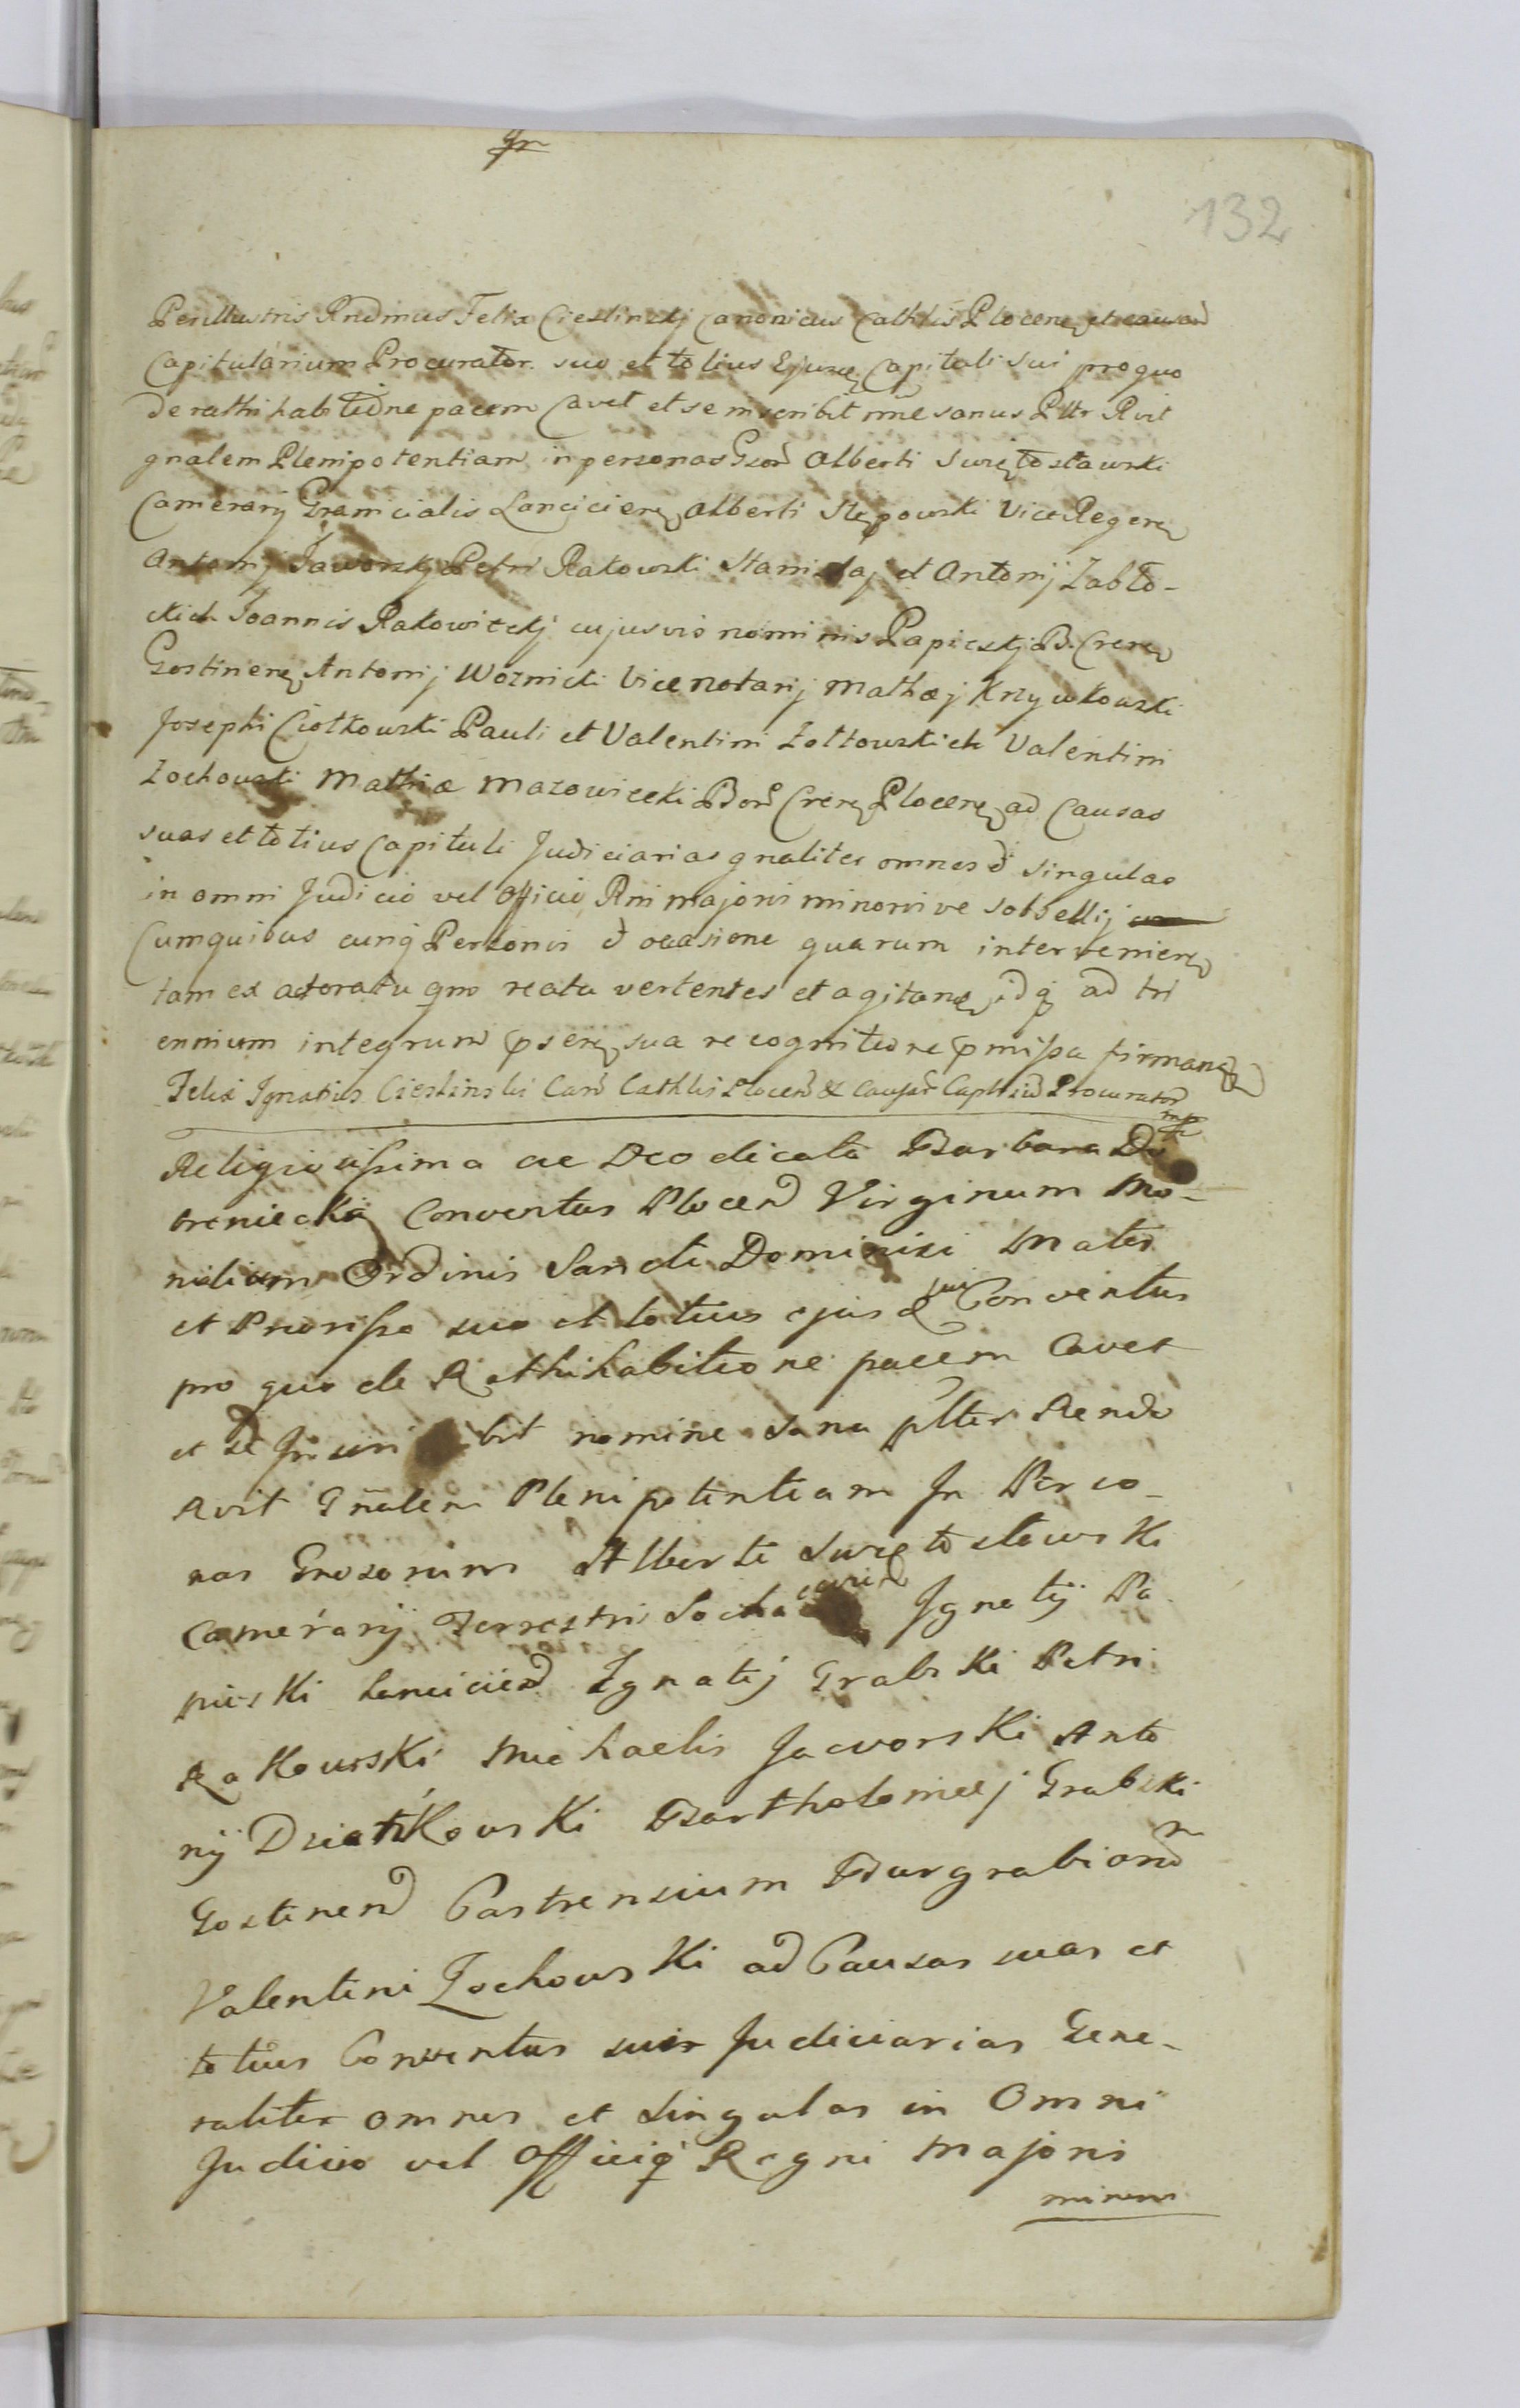 132
Perillustris Rndmus Felix Cieslinskj Canonicus Cathlis Plocen et causar
Capitularium Procurator suo et totius Ejusd Capituli sui pro quo
de rathihabitione pacem Cavet et se inscribit nne sanus Pltr Rvit
gnalem Plenipotentiam in personas Gsor Alberti Swiętosławski
Camerarij Granicialis Lancicien Alberti Stępowski Vice Regen
Antonij Jaworskj Petri Rakowski Stanislaj et Antonij Zabło-
ckich Joannis Rakowieckj cujusvis nominis Papieskj B. Cren
Gostinen Antonij Woznicki Vice notarij Mathæj Krzywkowski
Josephi Ciołkowski Pauli et Valentini Zołtowskich Valentini
Zochowski Mathiæ Mazowiecki Bor Cren Plocen ad Causas
suas et totius Capituli Judiciarias gnaliter omnes et singulas
in omni Judicio vel Officio Rni majoris minorisve subsellij
Cumquibus cunq Personis et occasione quarum intervenien
tam ex actoratu qm reatu vertentes et agitan idq ad tri
ennium integrum psen sua recognitione pmissa firman
Felix Ignatius Cieslinski Can Cathlis Plocen & Causar Caplriu Procurator
mp
Religiosissima ac Deo dicata Barbara Do
breniecka Conventus Plocen Virginum Mo-
nialium Ordinis Sancti Dominici Mater
et Priorissa suo et totius ejusd sui Conventus
pro quo de Rathihabitione pacem Cavet
et se Inscribit nomine sana plter Rendo
Rvit Gnalem Plenipotentiam In Perso-
nas Grosorum Alberti Swiętosławski
Camerarij Terrestris Socha Ignatij Pa
pieski Lancicien Ignatij Grabski Petri
Rakowski Michaelis Jaworski Anto
nij Dziatkowski Bartholomeej Grabski
Gostinen Castrensium Burgrabior
Valentini Zochowski ad Causas suas et
totius Conventus sui Judiciarias Gene-
raliter omnes et singulas in Omni
Judicio vel Officioq Regni Majoris
minoris